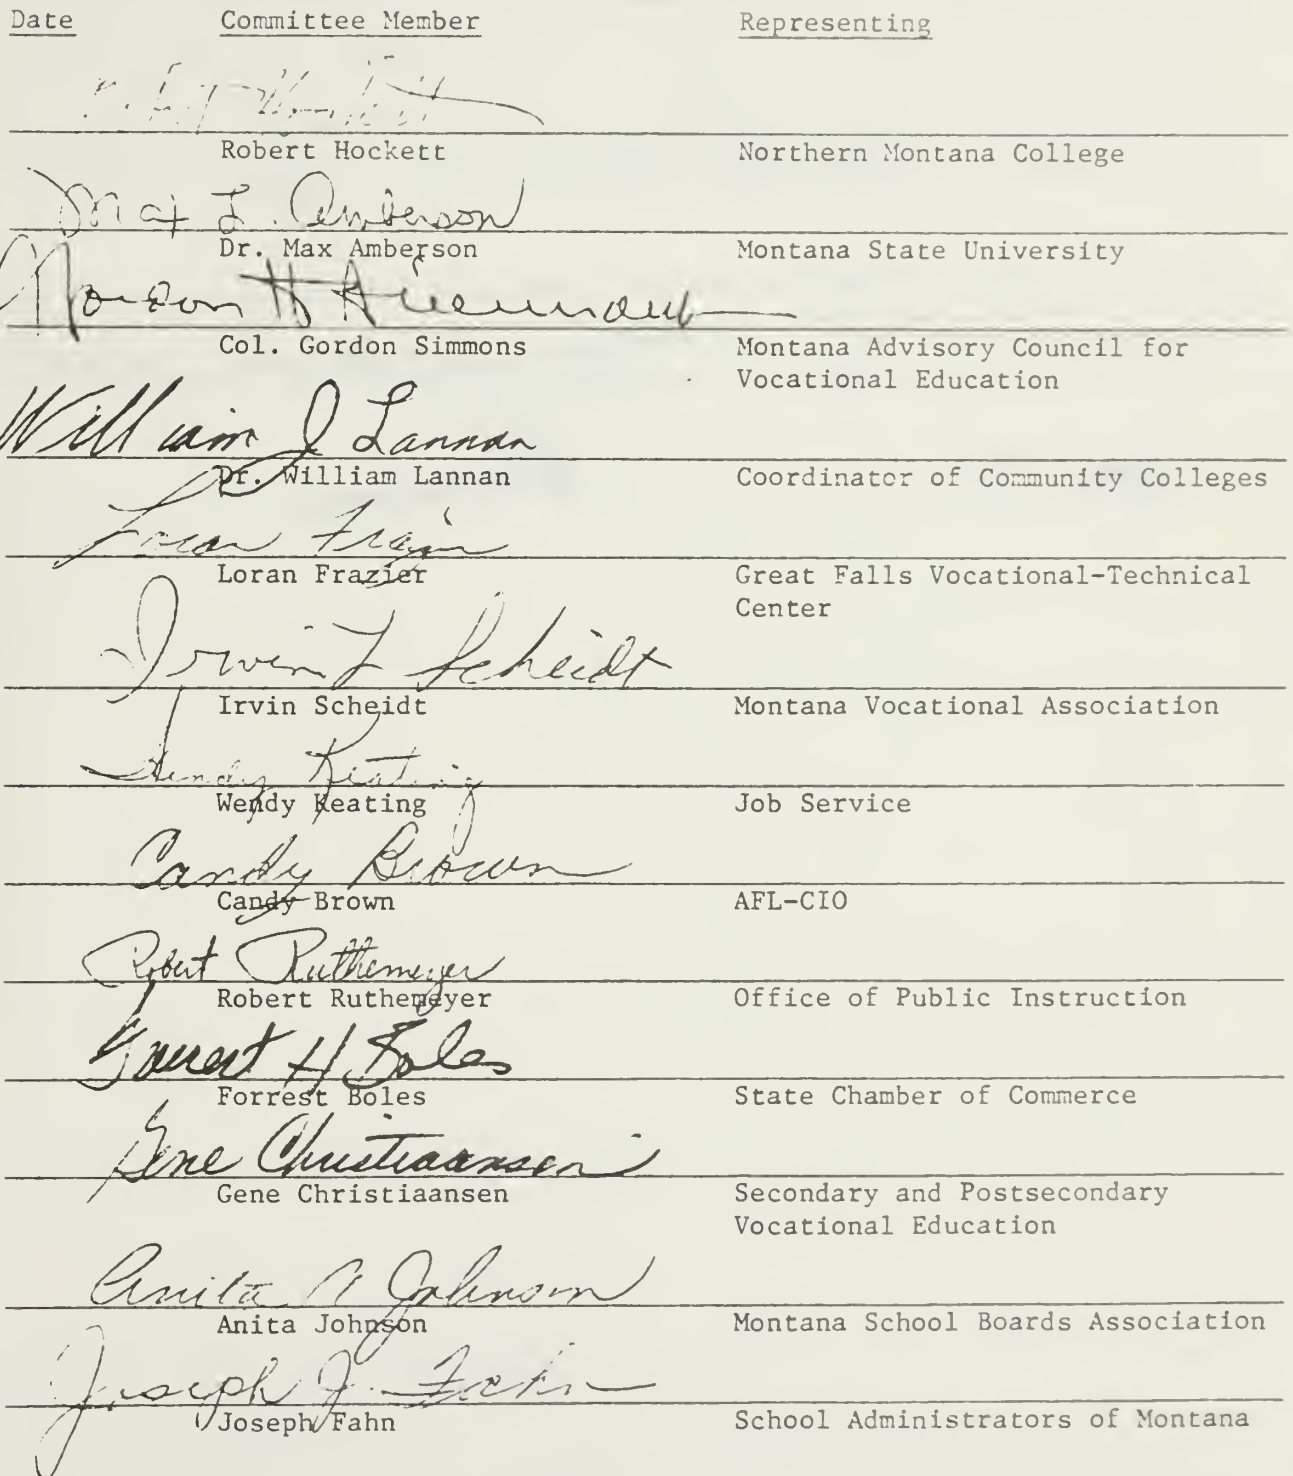 Date Committee Member Representing
Robert Hockett Northern Montana College
Max L. Amberson
Dr. Max Amberson Montana State University
Gordon H
Col. Gordon Simmons Montana Advisory Council for
Vocational Education
William J Lannan
Dr. William Lannan Coordinator of Community Colleges
Loran Frazier
Loran Frazier Great Falls Vocational-Technical
Center
Irvin L Scheidt
Irvin Scheidt Montana Vocational Association
Wendy Keating
Wendy Keating Job Service
Candy Brown
Candy Brown AFL-CIO
Robert Ruthemeyer
Robert Ruthemeyer Office of Public Instruction
Forrest H Boles
Forrest Boles State Chamber of Commerce
Gene Christiaansen
Gene Christiaansen Secondary and Postsecondary
Vocational Education
Anita Johnson
Anita Johnson Montana School Boards Association
Joseph J. Fahn
Joseph Fahn School Administrators of Montana